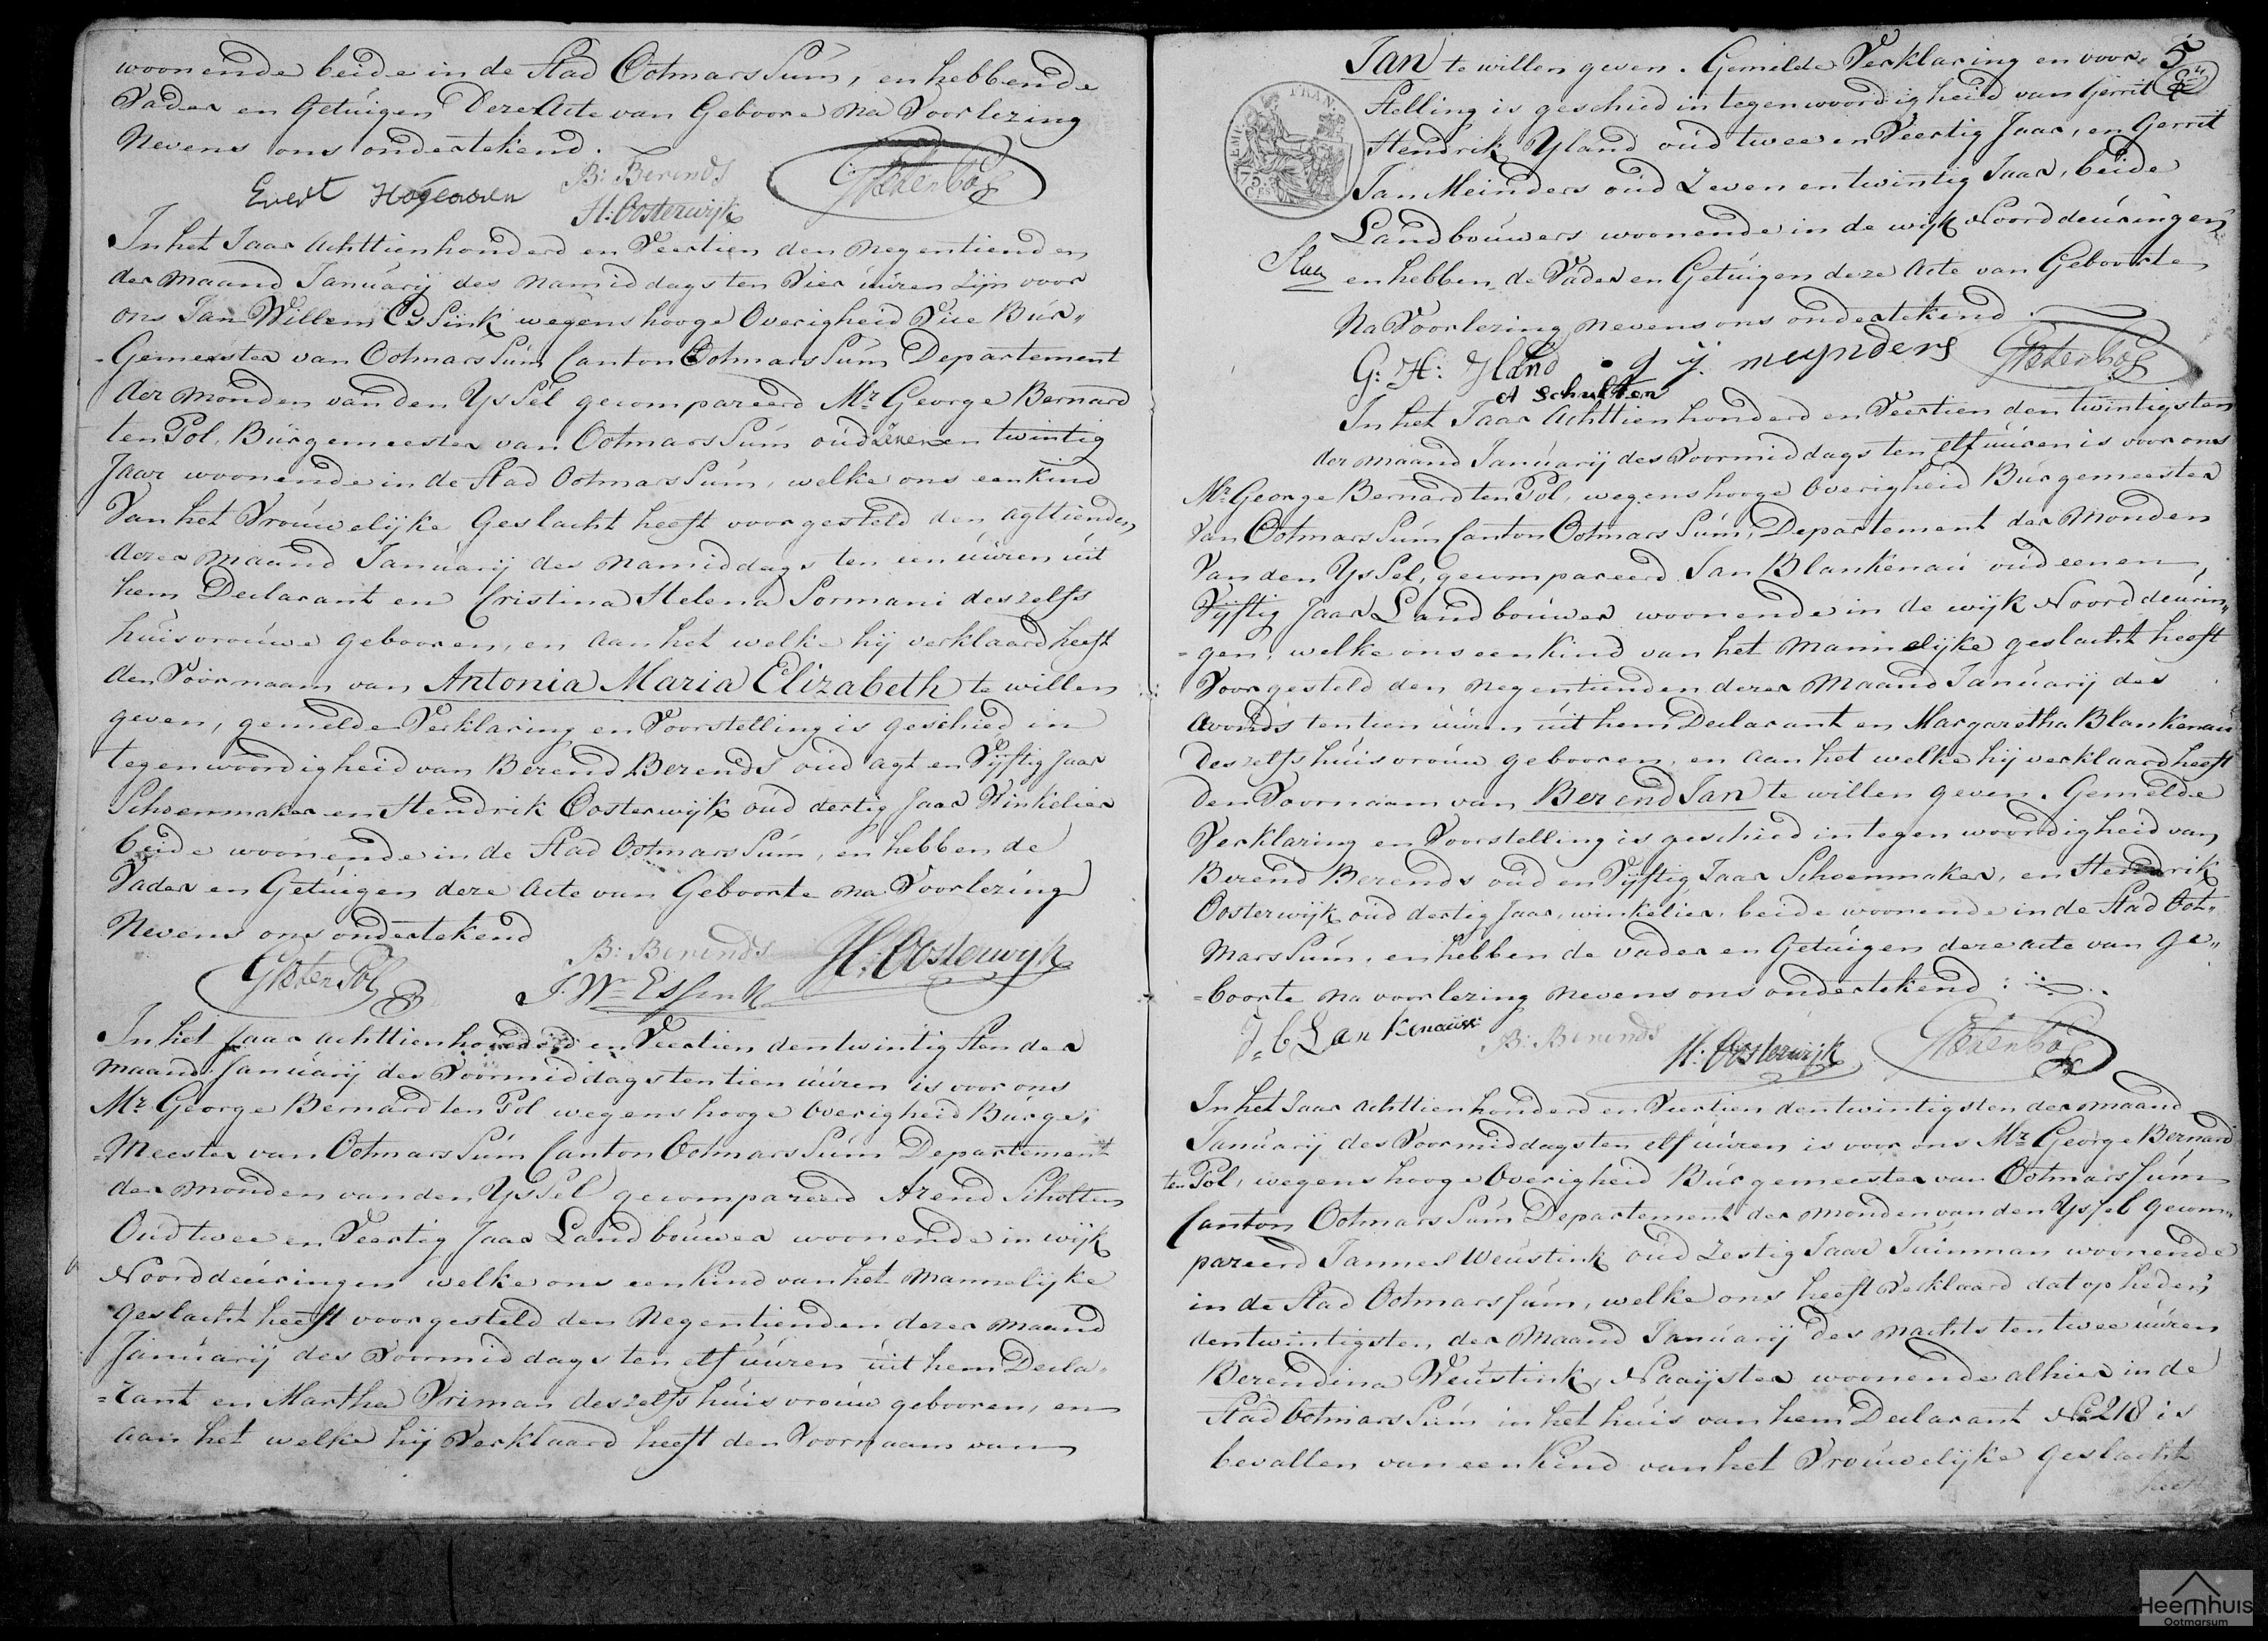 woonende beide in de Stad Ootmarssum, en hebbende
Vader en Getuigen deze Acte van Geboore na Voorlezing
Nevens ons ondertekend.
B: Berends
Evert
H: Oosterwijk
In het Jaar Achttienhonderd en Veertien den negentienden
der maand Januarij des namiddags ten Vier uuren zijn voor
ons Jan Willem Essink wegens hooge Overigheid Vice Bur„
-Gemeester van Ootmarssum Canton Ootmarssum Departement
der monden van den Yssel gecompareerd Mr George Bernard
ten Pol, Burgemeester van Ootmarssum oud Zeven en twintig
Jaar woonende in de Stad Ootmarssum, welke ons een kind
Van het Vrouwelijke Geslacht heeft voorgesteld den agttienden
dezer maand Januarij des namiddags ten een uuren uit
hem Declarant en Cristina Helena Sormani deszelfs
huisvrouwe gebooren, en aan het welke hij verklaard heeft
den Voornaam van Antonia Maria Elizabeth te willen
geven, gemelde Verklaring en Voorstelling is geschied in
tegenwoordigheid van Berend Berends oud agt en Vijftig Jaar
Schoenmaker en Hendrik Oosterwijk oud dertig Jaar Winkelier
beide woonende in de Stad Ootmarssum, en hebben de
Vader en Getuigen deze Acte van Geboorte na Voorlezing
Nevens ons ondertekend
B: Berends H: Oosterwijk
GB ten Pol
J. Wm Essink
In het Jaar achttienhonderd en Veertien den twintigsten der
maand Januarij des Voormiddags ten tien uuren is voor ons
Mr George Bernard ten Pol wegens hooge Overigheid Burge„
-Meester van Ootmarssum Canton Ootmarssum Departement
der monden van den Yssel gecompareerd Arend Scholten
Oud twee en Veertig Jaar Landbouwer woonende in wijk
Noorddeuringen welke ons een kind van het Mannelijke
Geslacht heeft voorgesteld den Negentienden dezer maand
Januarij des Voormiddags ten elf uuren uit hem Decla-
=rant en Martha Vriman deszelfs huisvrouw gebooren, en
aan het welke hij Verklaard heeft den Voornaam van
5
Jan te willen geven. Gemelde Verklaring en voor-
Stelling is geschied in tegenwoordigheid van Gerrit
Hendrik Yland oud twee en Veertig Jaar, en Gerrit
Jan Meinders oud Zeven en twintig Jaar, beide
Landbouwers woonende in de wijk Noorddeuringen,
en hebben de Vader en Getuigen deze Acte van Geboorte
Na Voorlezing nevens ons ondertekend
G: H: Yland g j. meynders
A Schulten
In het Jaar Achttienhonderd en Veertien den twintigsten
der maand Januarij des Voormiddags ten elf uuren is voor ons
Mr George Bernard ten Pol, wegens hooge Overigheid Burgemeester
Van Ootmarssum Canton Ootmarssum, Departement der Monden
Van den Yssel, gecompareerd Jan Blankenau oud een en
Vijftig Jaar Landbouwer woonende in de wijk Noorddeurin„
=gen, welke ons een kind van het Mannelijke geslacht heeft
Voorgesteld den negentienden dezer Maand Januarij des
avonds ten tien uuren uit hem Declarant en Margaretha Blankenau
deszelfs huisvrouw gebooren, en aan het welke hij verklaard heeft
den Voornaam van Berend Jan te willen geven. Gemelde
Verklaring en Voorstelling is geschied in tegenwoordigheid van
Berend Berends oud en Vijftig Jaar Schoenmaker, en Hendrik
Oosterwijk oud dertig Jaar, winkelier, beide woonende in de Stad Oot„
marssum, en hebben de vader en Getuigen deze acte van ge„
=boorte na voorlezing nevens ons ondertekend
B: Berends
H: Oosterwijk
In het Jaar Achttienhonderd en Veertien den twintigsten der maand
Januarij des Voormiddags ten elf uuren is voor ons Mr George Bernard
ten Pol, wegens hooge Overigheid Burgemeester van Ootmarssum
Canton Ootmarssum Departement der monden van den Yssel gecom„
pareerd Jannes Weustink oud Zestig Jaar Tuinman woonende
in de Stad Ootmarssum, welke ons heeft Verklaard dat op heden,
den twintigsten, der Maand Januarij des nachts ten twee uuren
Berendina Weustink, Naaijster woonende alhier in de
Stad Ootmarssum in het huis van hem Declarant No 218 is
bevallen van een Kind van het Vrouwelijke Geslacht
Heemhuis
Ootmarsum